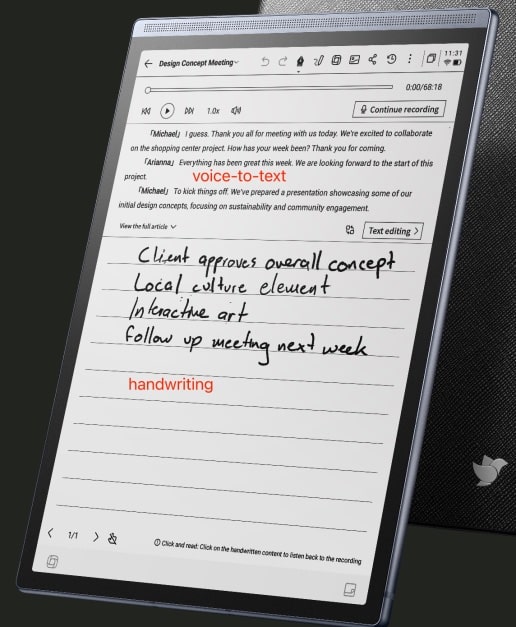 Design Concept Meeting
11:31
0:00/68:18
1.0x
Continue recording
「Michael」 I guess. Thank you all for meeting with us today. We're excited to collaborate
on the shopping center project. How has your week been? Thank you for coming.
「Arianna」 Everything has been great this week. We are looking forward to the start of this
project.
voice-to-text
「Michael」 To kick things off. We've prepared a presentation showcasing some of our
initial design concepts, focusing on sustainability and community engagement.
View the full article
Text editing >
Client approves overall concept
Local culture element
Interactive art
follow up meeting next week
handwriting
< 1/1 >
Click and read: Click on the handwritten content to listen back to the recording